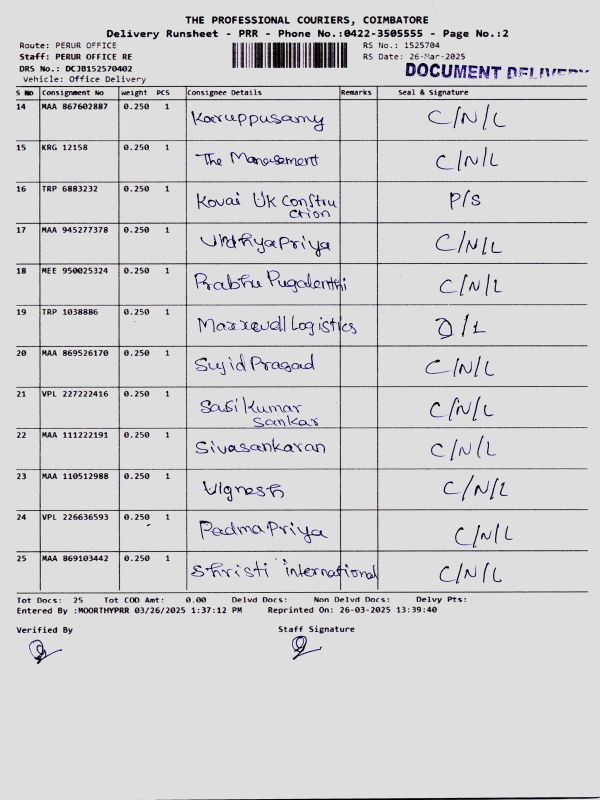 THE PROFESSIONAL COURIERS, COIMBATORE
Delivery Runsheet - PRR - Phone No.:0422-3505555 - Page No.:2
Route: PERUR OFFICE RS No.: 1525704
Staff: PERUR OFFICE RE RS Date: 26-Mar-2025
DRS No.: DCJB152570402 DOCUMENT DELIVERY
Vehicle: Office Delivery
S No Consignment No weight PCS Consignee Details Remarks Seal & Signature
14 MAA 867602887 0.250 1 Karuppusamy C/N/L
15 KRG 12158 0.250 1 The Management C/N/L
16 TRP 6883232 0.250 1 Kovai UK Constru P/S
ction
17 MAA 945277378 0.250 1 VidhyaPriya C/N/L
18 MEE 950025324 0.250 1 Prabhu Pugalenthi C/N/L
19 TRP 1038886 0.250 1 Logistics
20 MAA 869526170 0.250 1 Sujid Prasad C/N/L
21 VPL 227222416 0.250 1 Sasi Kumar C/N/L
Sankar
22 MAA 111222191 0.250 1 Sivasankaran C/N/L
23 MAA 110512988 0.250 1 Vignesh C/N/L
24 VPL 226636593 0.250 1 Padma Priya C/N/L
25 MAA 869103442 0.250 1 Shristi international C/N/L
Tot Docs: 25 Tot COD Amt: 0.00 Delvd Docs: Non Delvd Docs: Delvy Pts:
Entered By :MOORTHYPRR 03/26/2025 1:37:12 PM Reprinted On: 26-03-2025 13:39:40
Verified By Staff Signature